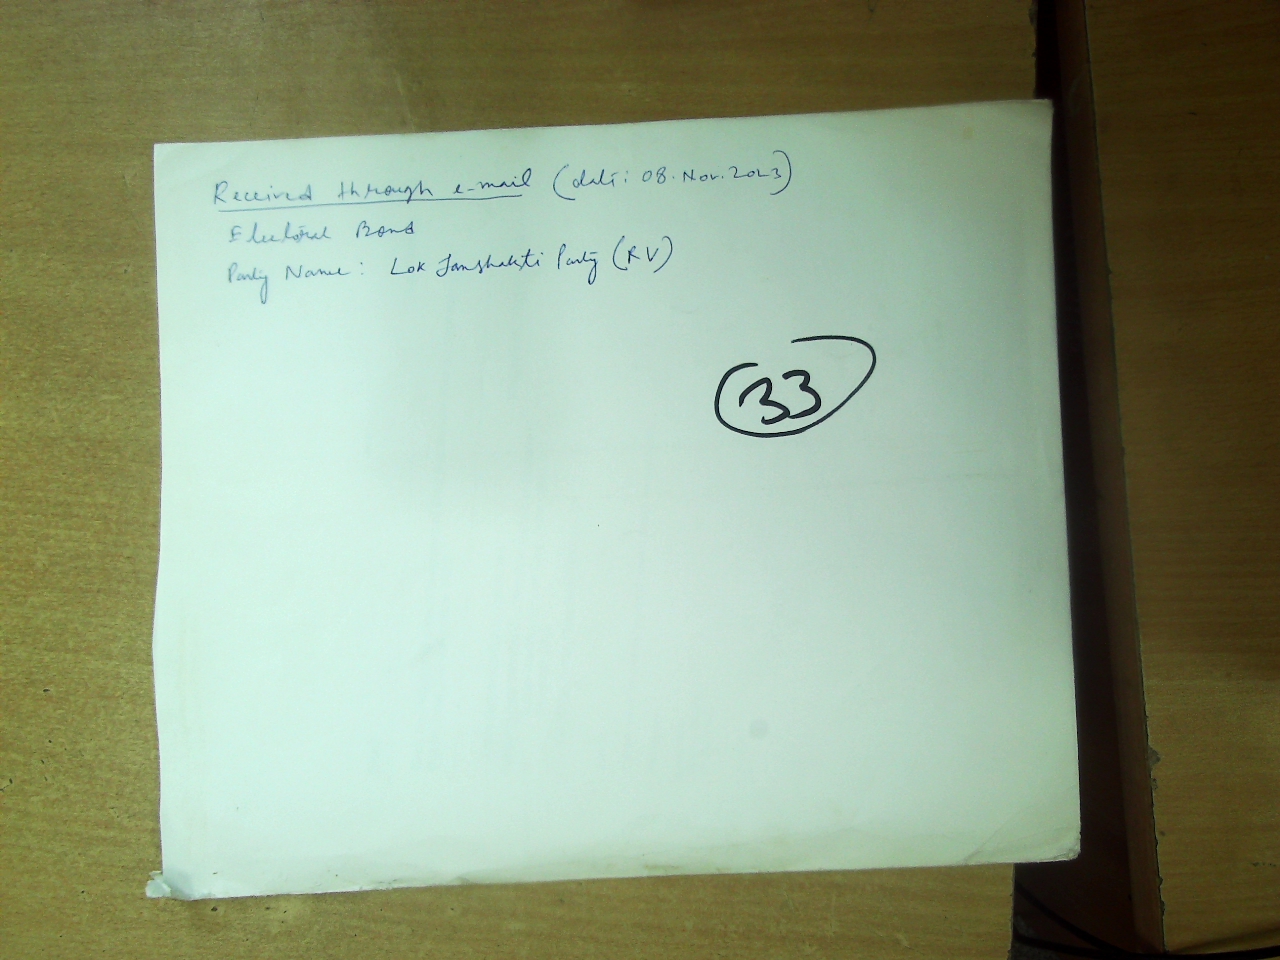 Received through e-mail (date: 08.Nov.2023)
Electoral Bond
Party Name: Lok Janshakti Party (RV)
33